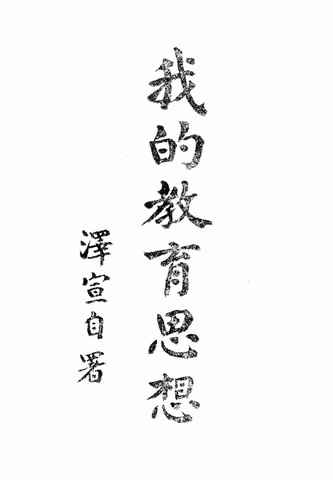 我的教育思想
澤宣自署